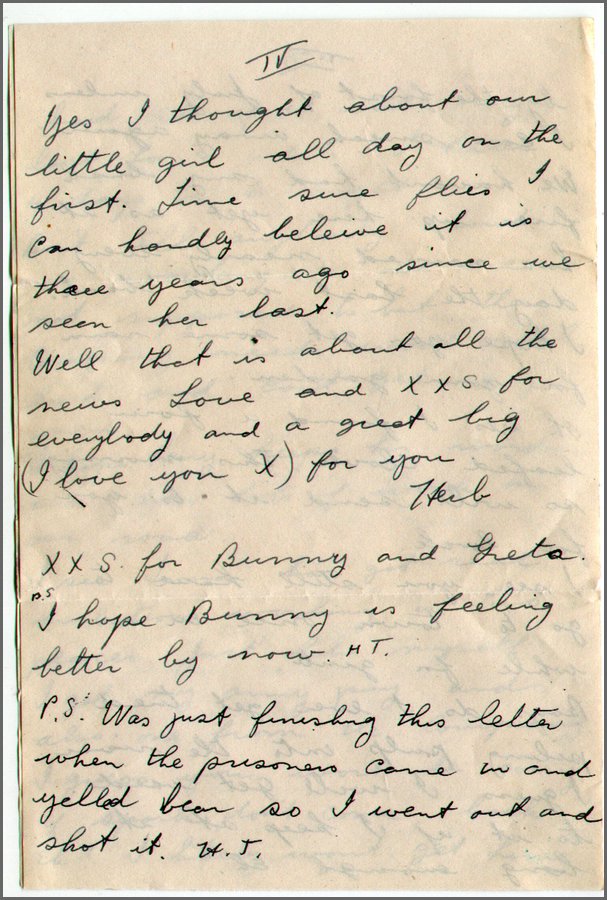 IV
Yes I thought about our
little girl all day on the
first. Time sure flies I
can hardly beleive it is
three years ago since we
seen her last.
Well that is about all the
news Love and X X S for
everybody and a great big
(I love you X) for you
Herb
X X S. for Bunny and Greta.
P.S
I hope Bunny is feeling
better by now. H T.
P.S. Was just finishing this letter
when the prisoners came in and
yelled bear so I went out and
shot it. H.T.